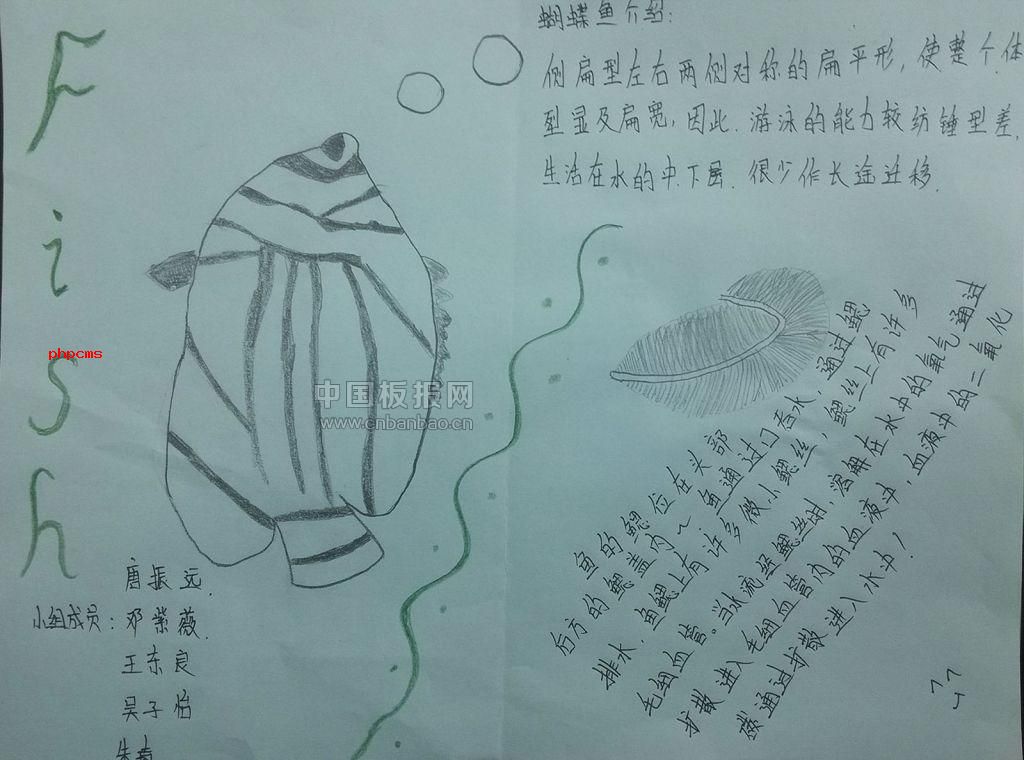 Fish
蝴蝶鱼介绍：
侧扁型左右两侧对称的扁平形，使整个体
型显及扁宽，因此．游泳的能力较纺锤型差，
生活在水的中．下层．很少作长途迁移．
phpcms
中国板报网
www.cnbanbao.cn
鱼的鳃位在头部
后方的鳃盖内~鱼通过口吞水，通过鳃
排水，鱼鳃上有许多微小鳃丝，鳃丝上有许多
毛细血管。当水流经鳃丝时，溶解在水中的氧气通过
扩散进入毛细血管内的血液中，血液中的二氧化
碳通过扩散进入水中！
唐振远．
小组成员：邓紫薇．
王东良
吴子怡